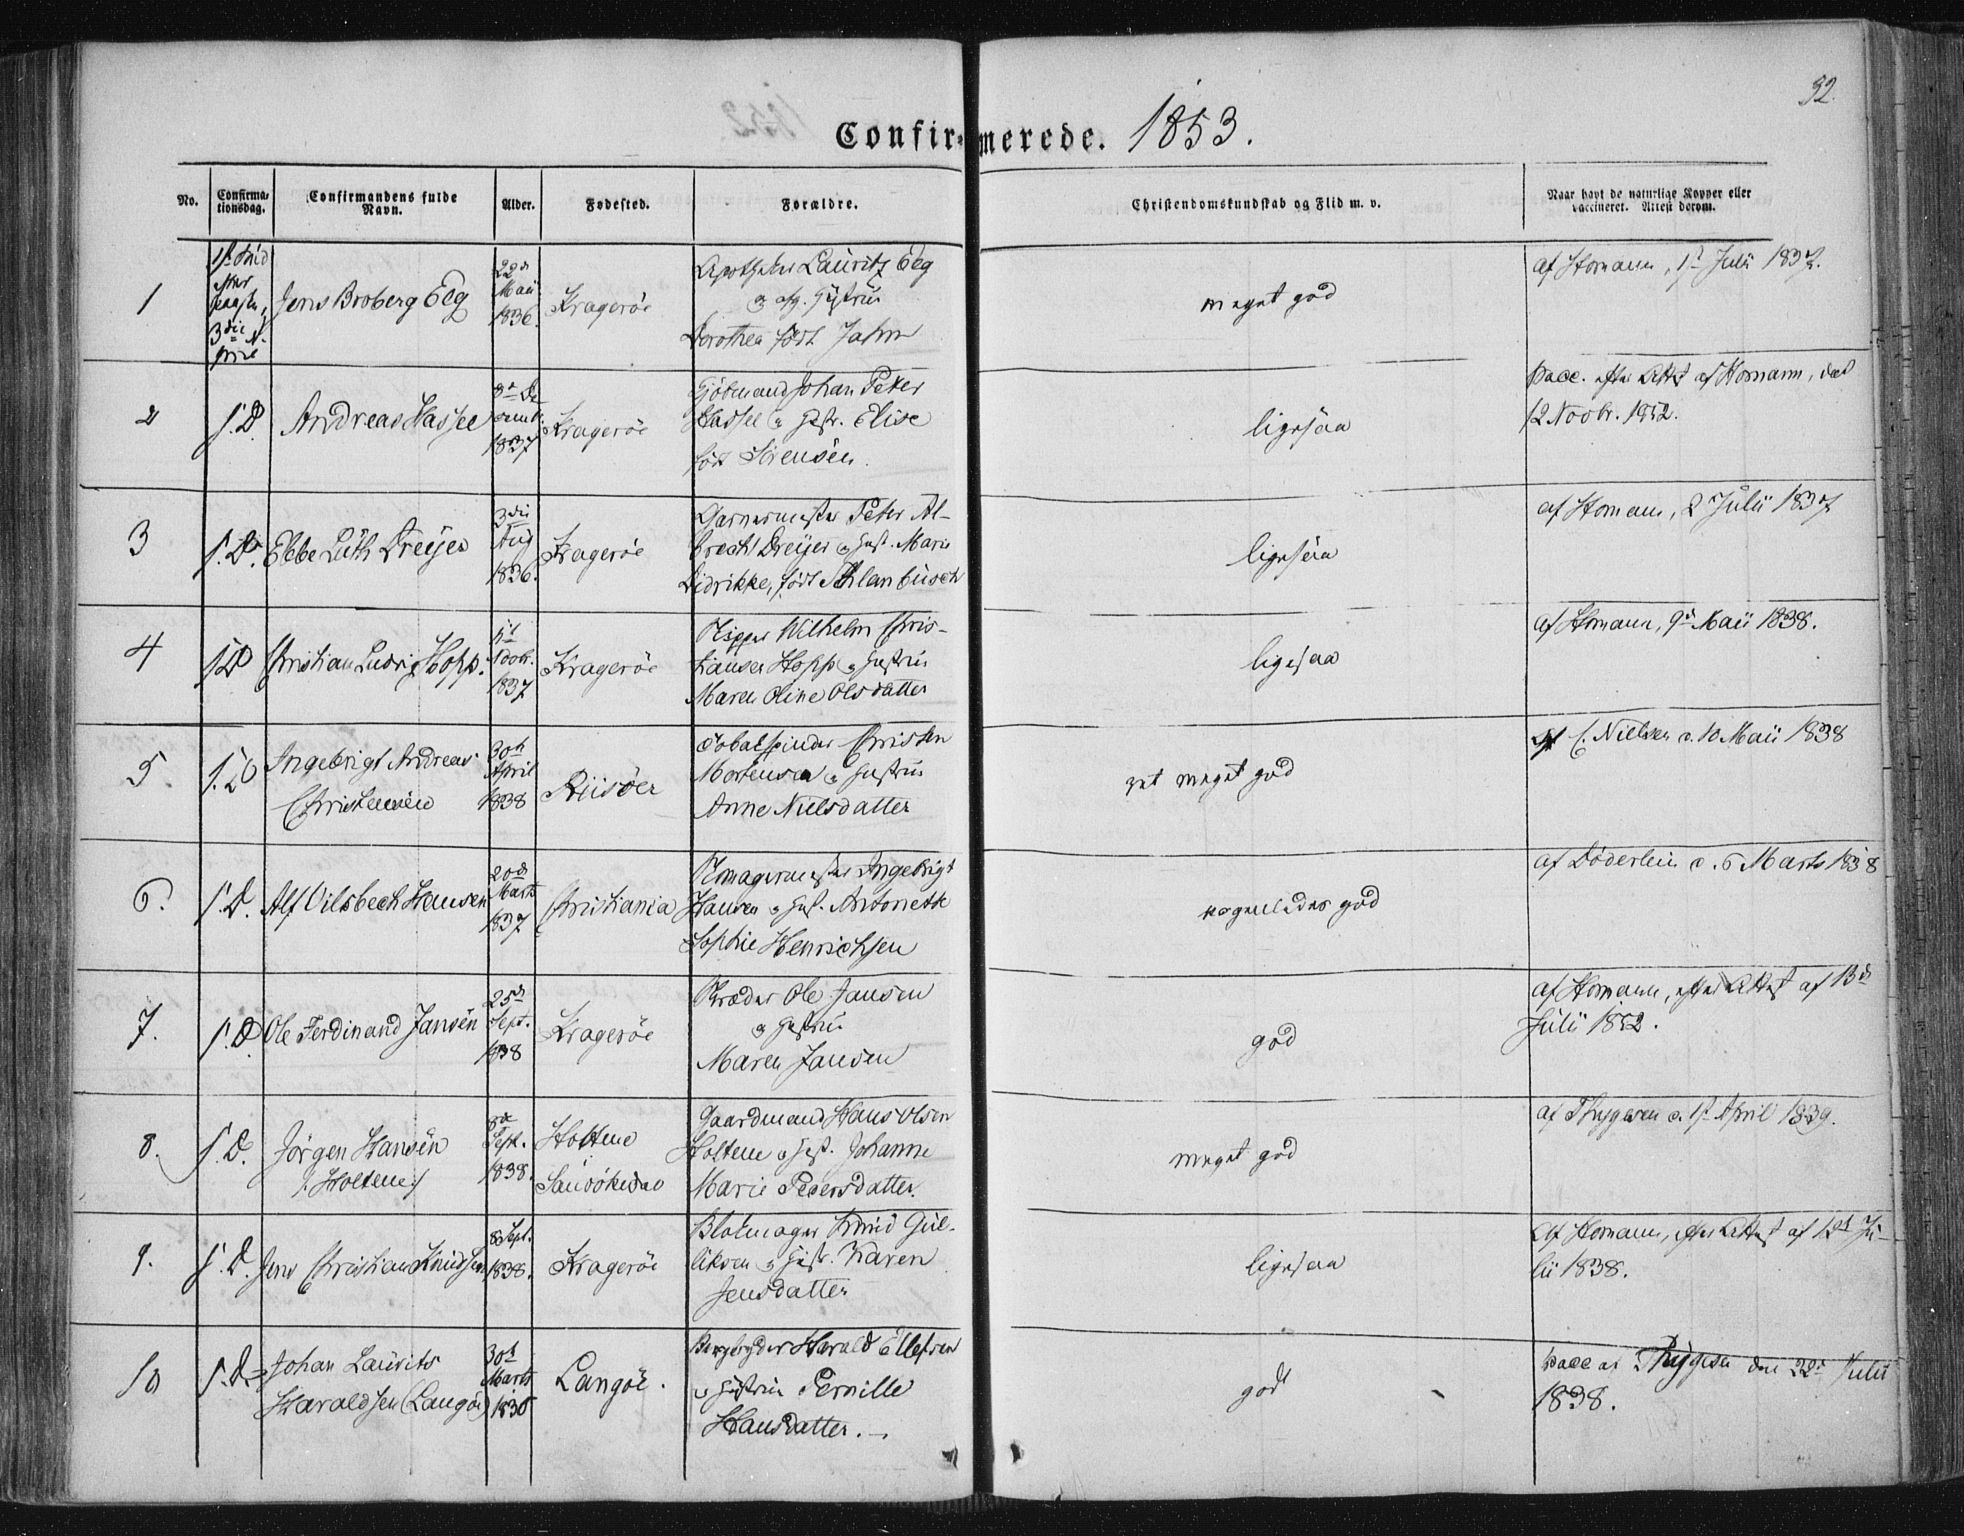 92.
Confirmerede. 1853.
No. Confirmationsdag. Confirmandens fulde Navn. Alder. Fødested. Forældre. Christendomskundskab og Flid m. v. Naar havt de naturlige Kopper eller vaccineret. Attest derom.
1
3die A-
pril
Jens Broberg Eeg
22de
Maii
1836.
Kragerøe
Apotheker Lauritz Eeg
og afg. Hustrue
Dorothea født Jahn
meget god
af Homann, 1st Julii 1837.
2
S. D.
Andreas Hassel
3de De
cemb.
1837
Kragerøe
Johan Peter
Hassel og Hustr. Elise
født Sørensen.
ligesaa
vacc. efter Attest af Homann, dat
12 Novbr. 1852.
3
S. D.
Ebbe Lüth Dreyer
3die
Aug
1836.
Kragerøe
Garvermester Peter Al-
brecht Dreyer og Hust. Marie
Didrikke, født Schlanbusch
ligesaa
af Homann, 2 Julii 1837
4
S. D
Christian Ludvig Hopp.
Novbr.
1837
Kragerøe
Skipper Wilhelm Chris-
tiansen Hopp og Hustrue
Maren Oline Olsdatter
ligesaa
af Homann, 9de Maii 1838.
5.
S. D
Ingebrigt Andreas
Christensen
30te
April
1838
Riisøer
Tobakspinder Christen
Mortensen og Hustrue
Anne Nielsdatter
meget god
af C. Nielsen d. 10 Maii 1838
6.
S. D.
Alf Vilsbech Hansen
20de
Marts
1837
Christiania
Skomagermester Ingebrigt
Hansen og Hust. Antonette
Sophie Henrichsen
nogenledes god
af Døderlein d. 6 Marts 1838
7.
S. D.
Ole Ferdinand Jansen
25de
Sept.
1838
Kragerøe
Skræder Ole Jansen
og Hustrue
Maren Jansen
god
af Homann, efter Attest af 13de
Julii 1852.
8.
S. D.
Jørgen Hansen
/: Holtene :/
8de
Sept.
1838.
Holtene
Sandøkedal
Gaardmand Hans Olsen
Holtene og Hust. Johanne
Marie Pedersdatter.
meget god
af Thygesen d. 1st April 1839.
9.
S. D.
Jens Christian Knudsen
8 Sept.
1838.
Kragerøe
Blokmager Knud Gul-
liksen og Hustr. Karen
Jensdatter
ligesaa
af Homann, efter Attest af 13de Ju-
lii 1838.
10
S. D.
Johan Lauvits
Haraldsen (Langøe)
30te
Marts
1838
Langøe.
Bergbryder Harald Ellefsen
og Hustrue Pernille
Hansdatter.
godt
vacc af Thygesen den 22de Julii
1838.